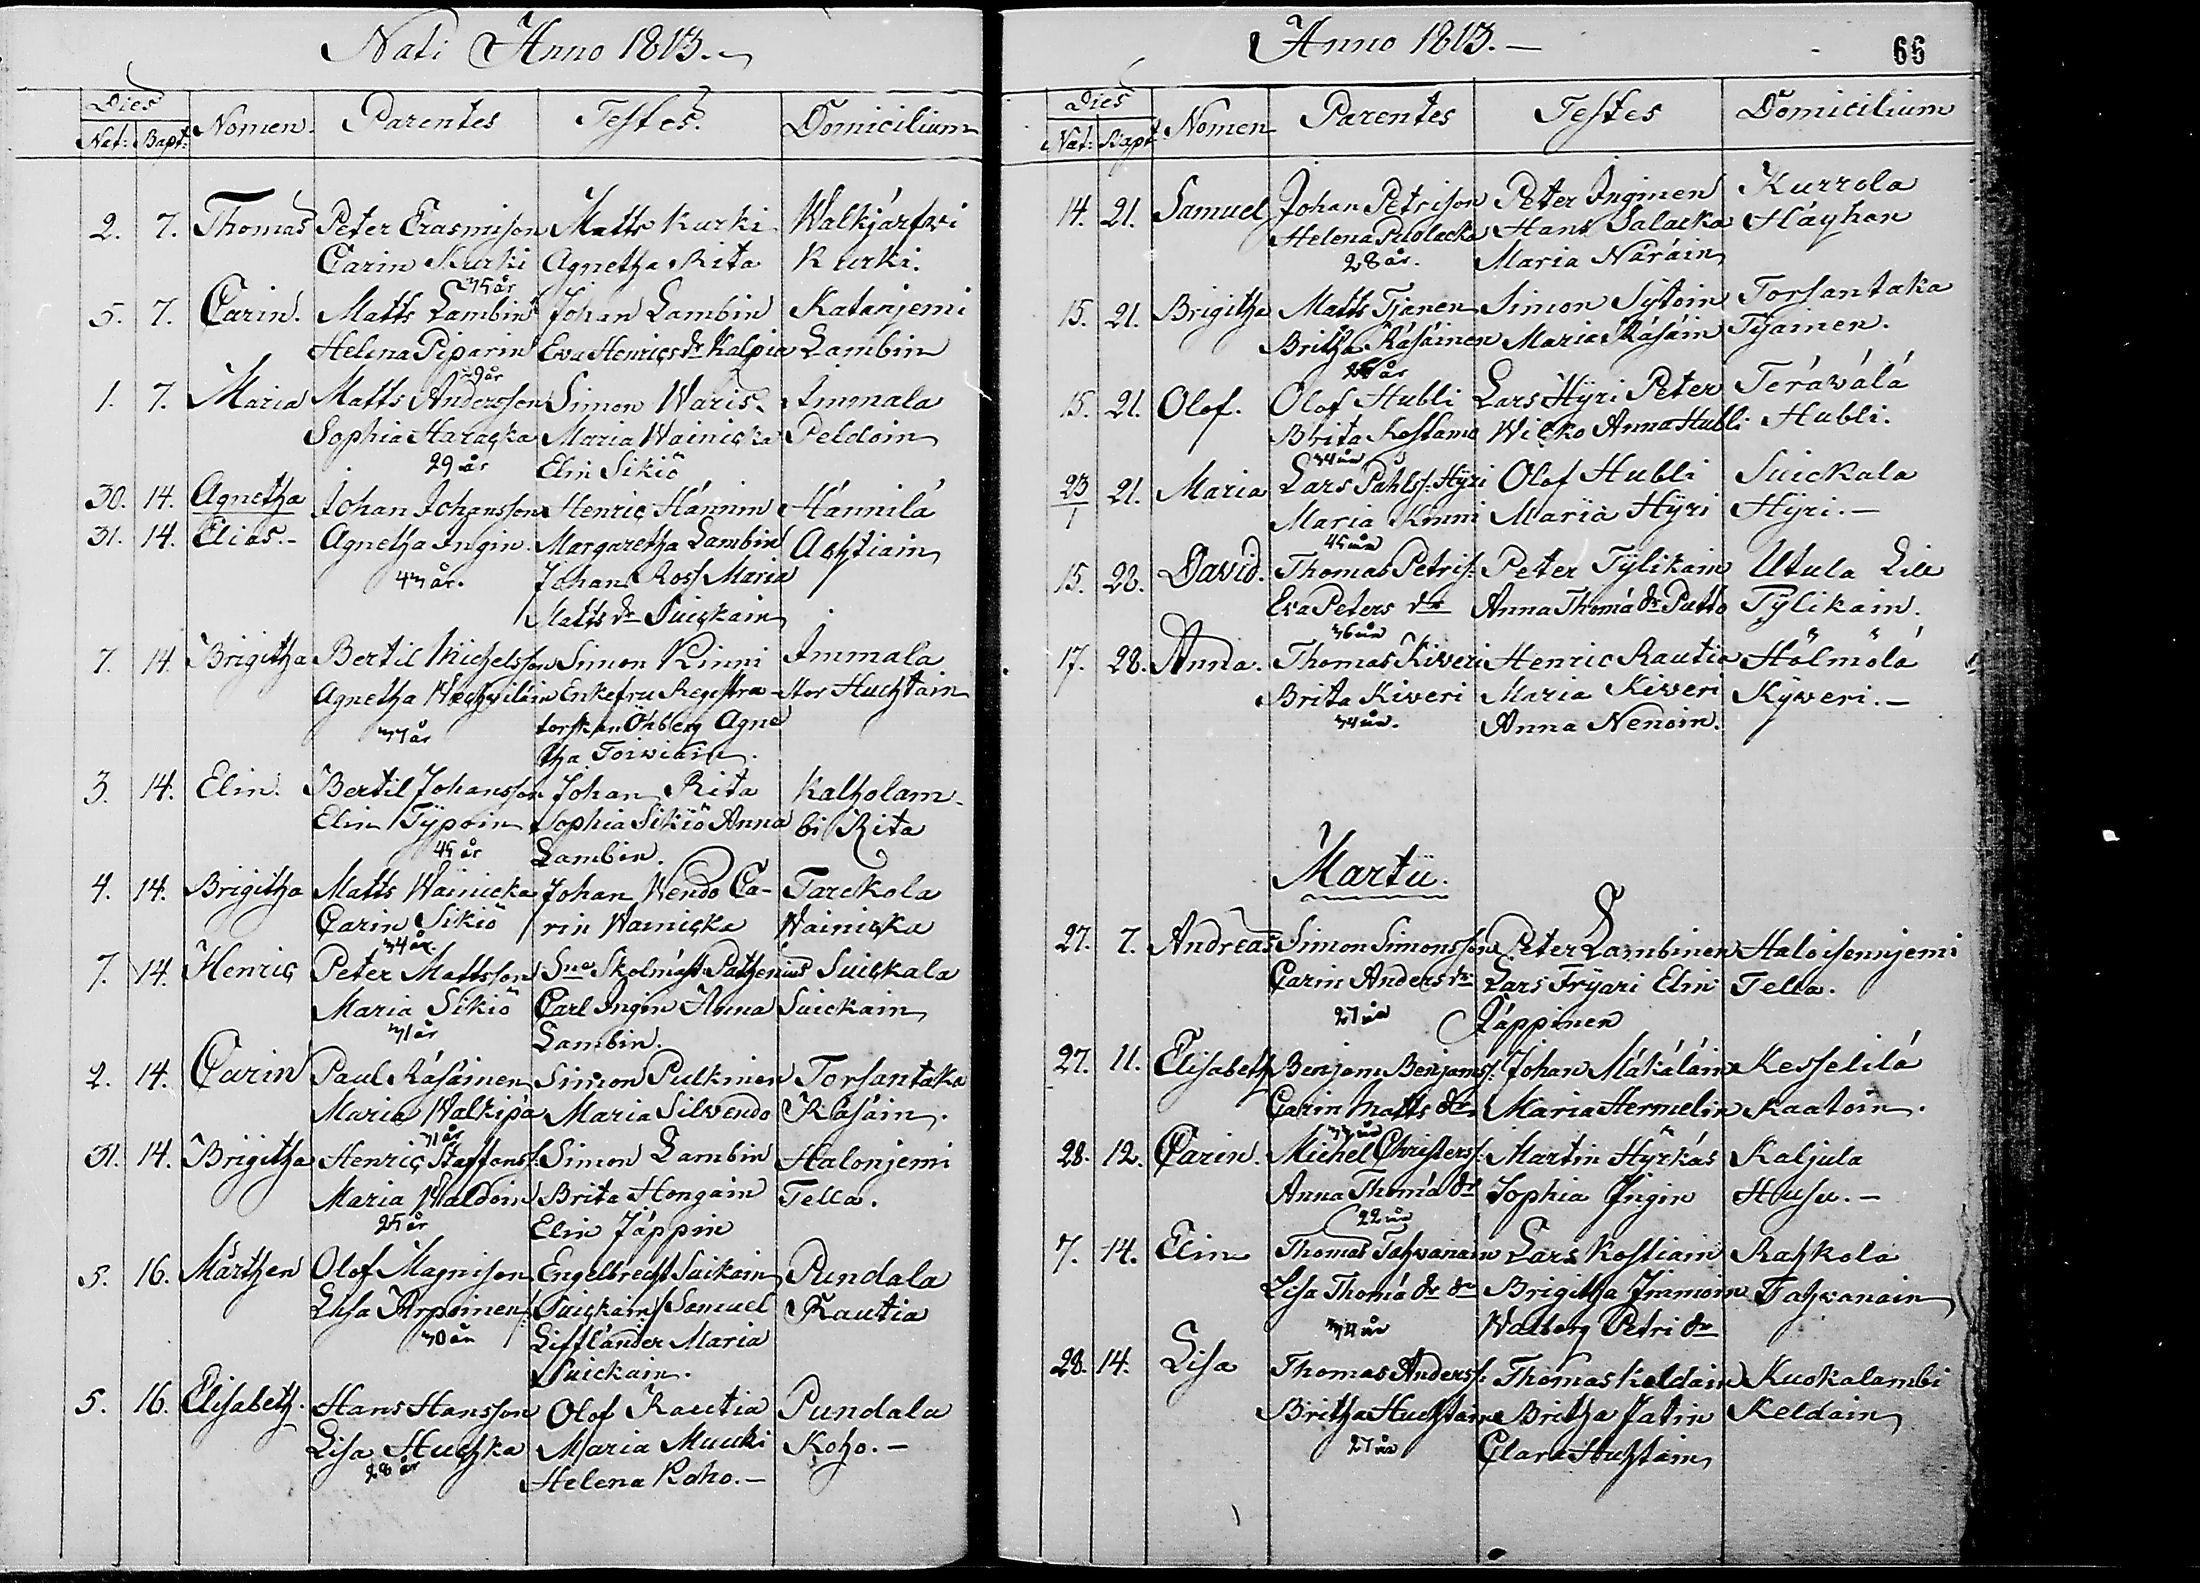 Nati Anno 1813.
Dies
Nat: Bapt: Nomen. Parentes Testes. Domicilium
2. 7. Thomas Peter Erasmison Matts Kurki Walkjärfwi
Carin Kurki Agnetha Rita Kurki.
35 år
5. 7. Carin. Matts Lambin Johan Lambin Katanjemi
Helena Piparin Eva Henrics dr Kalpia Lambin
29 år
1. 7. Maria Matts Andersson Simon Waris. Immala
Sophia Haracka Maria Wainicka Peldoin
29 år Elin Sikiö
30. 14. Agnetha Johan Johansson Henric Hännin Hännilä
31. 14. Elias.- Agnetha Ingin. Margaretha Lambin Achtiain
43 år. Johan Ross Maria
Matts dr Suickain
7. 14. Brigitha Bertil Michelsson Simon Kinni Immala
Agnetha Enkefru Regestra- Huchtain
37 år torskan Öhberg Agne
tha Toiwiain.
3. 14. Elin. Bertil Johansson Johan Rita Kalholam-
Elin Typöin Sophia Sikiö Anna bi Rita
45 år Lambin.
4. 14. Brigitha Matts Wainicka Johan Wendo Ca- Tarckola
Carin Sikiö rin Wainicka Wainicka
34 år.
7. 14. Henric Peter Mattsson Skolmäst. Pathenius Suickala
Maria Sikiö Carl Ingin Anna Suickain
31 år Lambin.
2. 14. Carin Paul Räsäinen Simon Pulkinen Torsantaka
Maria Walkipä Maria Silwendo Räsäin.
31 år
31. 14. Brigitha Henric Staffans: Simon Lambin Halonjemi
Maria Waldoin Brita Hongain Tella.
25 år Elin Jäppin
5. 16. Mårthen Olof Magnison Engelbrecht Suikain Pundala
Lisa Arpoinen /:Suickain:/ Samuel Rautia
30 år Liffländer Maria
Suickain.
5. 16. Elisabeth. Hans Hansson Olof Rautia Pundala
Lisa Huchka Maria Muuki Koho.-
28 år Helena Koho.-
Anno 1813.-
66
Dies
Nat: Bapt: Nomen Parentes Testes Domicilium
14. 21. Samuel Johan Petrison Peter Inginen Kurrola
Helena Puolacka Hans Salacka Häyhan
28 år. Maria Näräin
15. 21. Brigitha Matts Tjänen Simon Sytoin Torsantaka
Britha Räsäinen Maria Räsäin Tjainen.
26 år
15. 21. Olof. Olof Hubli Lars Hyri Peter Teräwälä
Brita Kostamo Wicko Anna Hubli Hubli.
34 år
23/1 21. Maria Lars Pahls: Hyri Olof Hubli Suickala
Maria Kinni Maria Hyri Hyri.-
45 år
15. 28. David. Thomas Petris: Peter Tylikain Utula Lill
Eva Peters dr Anna Thomä dr Putto Tylikain.
36 år
17. 28. Anna. Thomas Kiweri Henric Rautia Hölmölä
Brita Kiweri Maria Kiweri Kyweri.-
34 år. Anna Nenoin.
Martii.
27. 7. Andreas Simon Simonsson Peter Lambinen Haloisenjemi
Carin Anders dr Lars Fryari Elin Tella.
27 år Jäppinen
27. 11. Elisabeth Benjam Benjams: Johan Mäkäläin Kesselilä
Carin Matts dr Maria Hermelin Kaatoin.
33 år
28. 12. Carin. Michel Christers: Martin Hyrkäs Kaljula
Anna Thomä dr Sophia Ingin Husu.-
22 år
7. 14. Elin Thomas Tahwanain Lars Kostiain Rahkola
Lisa Thomä dr dr Brigitha Immoin Tahwanain
34 år Walborg Petri dr
28. 14. Lisa Thomas Anders: Thomas Keldain Kuokalambi
Britha Huchtain Britha Patin Keldain
27 år Clara Huhtain